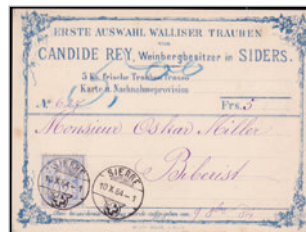 ERSTE AUSWAHL WALLISER TRAUBEN
von
CANDIDE REY, Weinbergbesitzer in SIDERS.
5 Ko. frische Trauben franco
Karte u. Nachnahmeprovision
No 627 Frs. 5
Monsieur Oskar Miller
Biberist
SIERRE
10 X 84 - 1
SIERRE
10 X 84 - 1